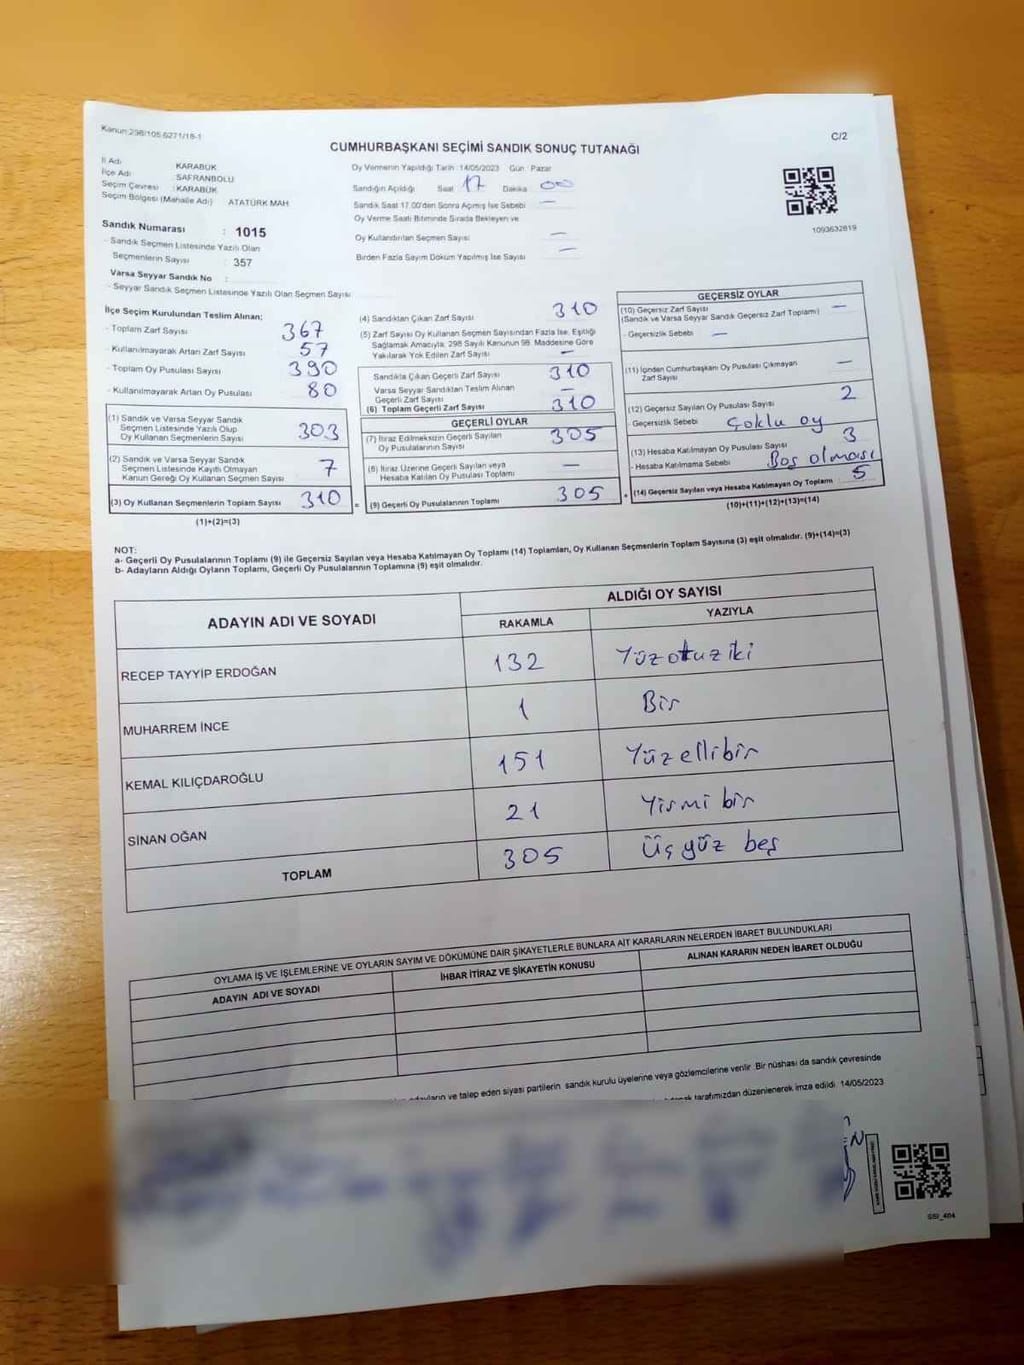 Kanun:298/105 6271/18-1
C/2
CUMHURBAŞKANI SEÇİMİ SANDIK SONUÇ TUTANAĞI
İl Adı KARABÜK
İlçe Adı SAFRANBOLU
Seçim Çevresi : KARABÜK
Seçim Bölgesi (Mahalle Adı) ATATÜRK MAH
Sandık Numarası : 1015
- Sandık Seçmen Listesinde Yazılı Olan
Seçmenlerin Sayısı : 357
Varsa Seyyar Sandık No :
- Seyyar Sandık Seçmen Listesinde Yazılı Olan Seçmen Sayısı
Oy Vermenin Yapıldığı Tarih :14/05/2023 Gün : Pazar
Sandığın Açıldığı Saat 17 Dakika 00
Sandık Saat 17.00'den Sonra Açmış İse Sebebi —
Oy Verme Saati Bitiminde Sırada Bekleyen ve
Oy Kullandırılan Seçmen Sayısı —
Birden Fazla Sayım Döküm Yapılmış İse Sayısı —
1093632819
İlçe Seçim Kurulundan Teslim Alınan;
- Toplam Zarf Sayısı 367
- Kullanılmayarak Artan Zarf Sayısı 57
- Toplam Oy Pusulası Sayısı 390
- Kullanılmayarak Artan Oy Pusulası 80
(1) Sandık ve Varsa Seyyar Sandık
Seçmen Listesinde Yazılı Olup
Oy Kullanan Seçmenlerin Sayısı 303
(2) Sandık ve Varsa Seyyar Sandık
Seçmen Listesinde Kayıtlı Olmayan
Kanun Gereği Oy Kullanan Seçmen Sayısı 7
(3) Oy Kullanan Seçmenlerin Toplam Sayısı 310
(1)+(2)=(3)
(4) Sandıktan Çıkan Zarf Sayısı 310
(5) Zarf Sayısı Oy Kullanan Seçmen Sayısından Fazla İse, Eşitliği
Sağlamak Amacıyla, 298 Sayılı Kanunun 98. Maddesine Göre
Yakılarak Yok Edilen Zarf Sayısı —
Sandıkla Çıkan Geçerli Zarf Sayısı 310
Varsa Seyyar Sandıktan Teslim Alınan
Geçerli Zarf Sayısı —
(6) Toplam Geçerli Zarf Sayısı 310
GEÇERLİ OYLAR
(7) İtiraz Edilmeksizin Geçerli Sayılan
Oy Pusulalarının Sayısı 305
(8) İtiraz Üzerine Geçerli Sayılan veya
Hesaba Katılan Oy Pusulası Toplamı —
= (9) Geçerli Oy Pusulalarının Toplamı 305
GEÇERSİZ OYLAR
(10) Geçersiz Zarf Sayısı —
(Sandık ve Varsa Seyyar Sandık Geçersiz Zarf Toplamı)
- Geçersizlik Sebebi : —
(11) İçinden Cumhurbaşkanı Oy Pusulası Çıkmayan
Zarf Sayısı —
(12) Geçersiz Sayılan Oy Pusulası Sayısı 2
- Geçersizlik Sebebi Çoklu oy
(13) Hesaba Katılmayan Oy Pusulası Sayısı 3
- Hesaba Katılmama Sebebi Boş olması
+ (14) Geçersiz Sayılan veya Hesaba Katılmayan Oy Toplamı 5
(10)+(11)+(12)+(13)=(14)
NOT:
a- Geçerli Oy Pusulalarının Toplamı (9) ile Geçersiz Sayılan veya Hesaba Katılmayan Oy Toplamı (14) Toplamları, Oy Kullanan Seçmenlerin Toplam Sayısına (3) eşit olmalıdır. (9)+(14)=(3)
b- Adayların Aldığı Oyların Toplamı, Geçerli Oy Pusulalarının Toplamına (9) eşit olmalıdır.
ADAYIN ADI VE SOYADI
ALDIĞI OY SAYISI
RAKAMLA YAZIYLA
RECEP TAYYİP ERDOĞAN 132 Yüzotuziki
MUHARREM İNCE 1 Bir
KEMAL KILIÇDAROĞLU 151 Yüzellibir
SİNAN OĞAN 21 Yirmi bir
TOPLAM 305 Üçyüz beş
OYLAMA İŞ VE İŞLEMLERİNE VE OYLARIN SAYIM VE DÖKÜMÜNE DAİR ŞİKAYETLERLE BUNLARA AİT KARARLARIN NELERDEN İBARET BULUNDUKLARI
ADAYIN ADI VE SOYADI İHBAR İTİRAZ VE ŞİKAYETİN KONUSU ALINAN KARARIN NEDEN İBARET OLDUĞU
adayların ve talep eden siyasi partilerin sandık kurulu üyelerine veya gözlemcilerine verilir. Bir nüshası da sandık çevresinde
tarafımızdan düzenlenerek imza edildi. 14/05/2023